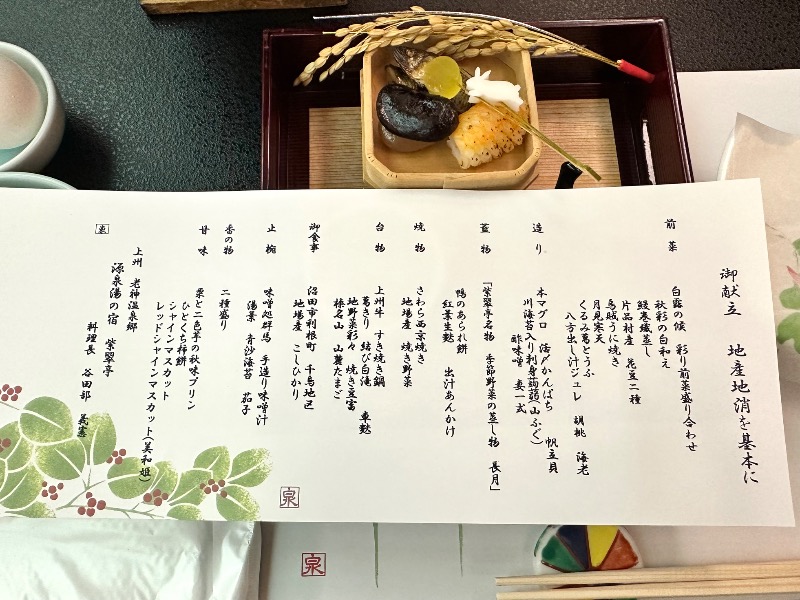 御献立　地産地消を基本に
前菜
白露の候　彩り前菜盛り合わせ
秋彩の白和え
鰻巻織蒸し
片品村産　花豆二種
烏賊うに焼き
月見寒天
くるみ葛とうふ
八方出し汁ジュレ　胡桃　海老
造り
本マグロ　活〆かんぱち　帆立貝
川海苔入り刺身蒟蒻(山ふぐ)
酢味噌　妻一式
蓋物
「紫翠亭名物　季節野菜の蒸し物　長月」
鴨のあられ餅　出汁あんかけ
紅葉生麩
焼物
さわら西京焼き
地場産　焼き野菜
台物
上州牛　すき焼き鍋
葛きり　結び白滝　車麩
地野菜彩々　焼き豆富
榛名山　山麓たまご
御食事
沼田市利根町　千鳥地区
地場産　こしひかり
止椀
味噌処群馬　手造り味噌汁
湯葉　青沙海苔　茄子
香の物
二種盛り
甘味
栗と二色芋の秋味プリン
ひとくち柿餅
シャインマスカット
レッドシャインマスカット(美和姫)
上州　老神温泉郷
源泉湯の宿　紫翠亭
料理長　谷田部　義憲
泉
泉